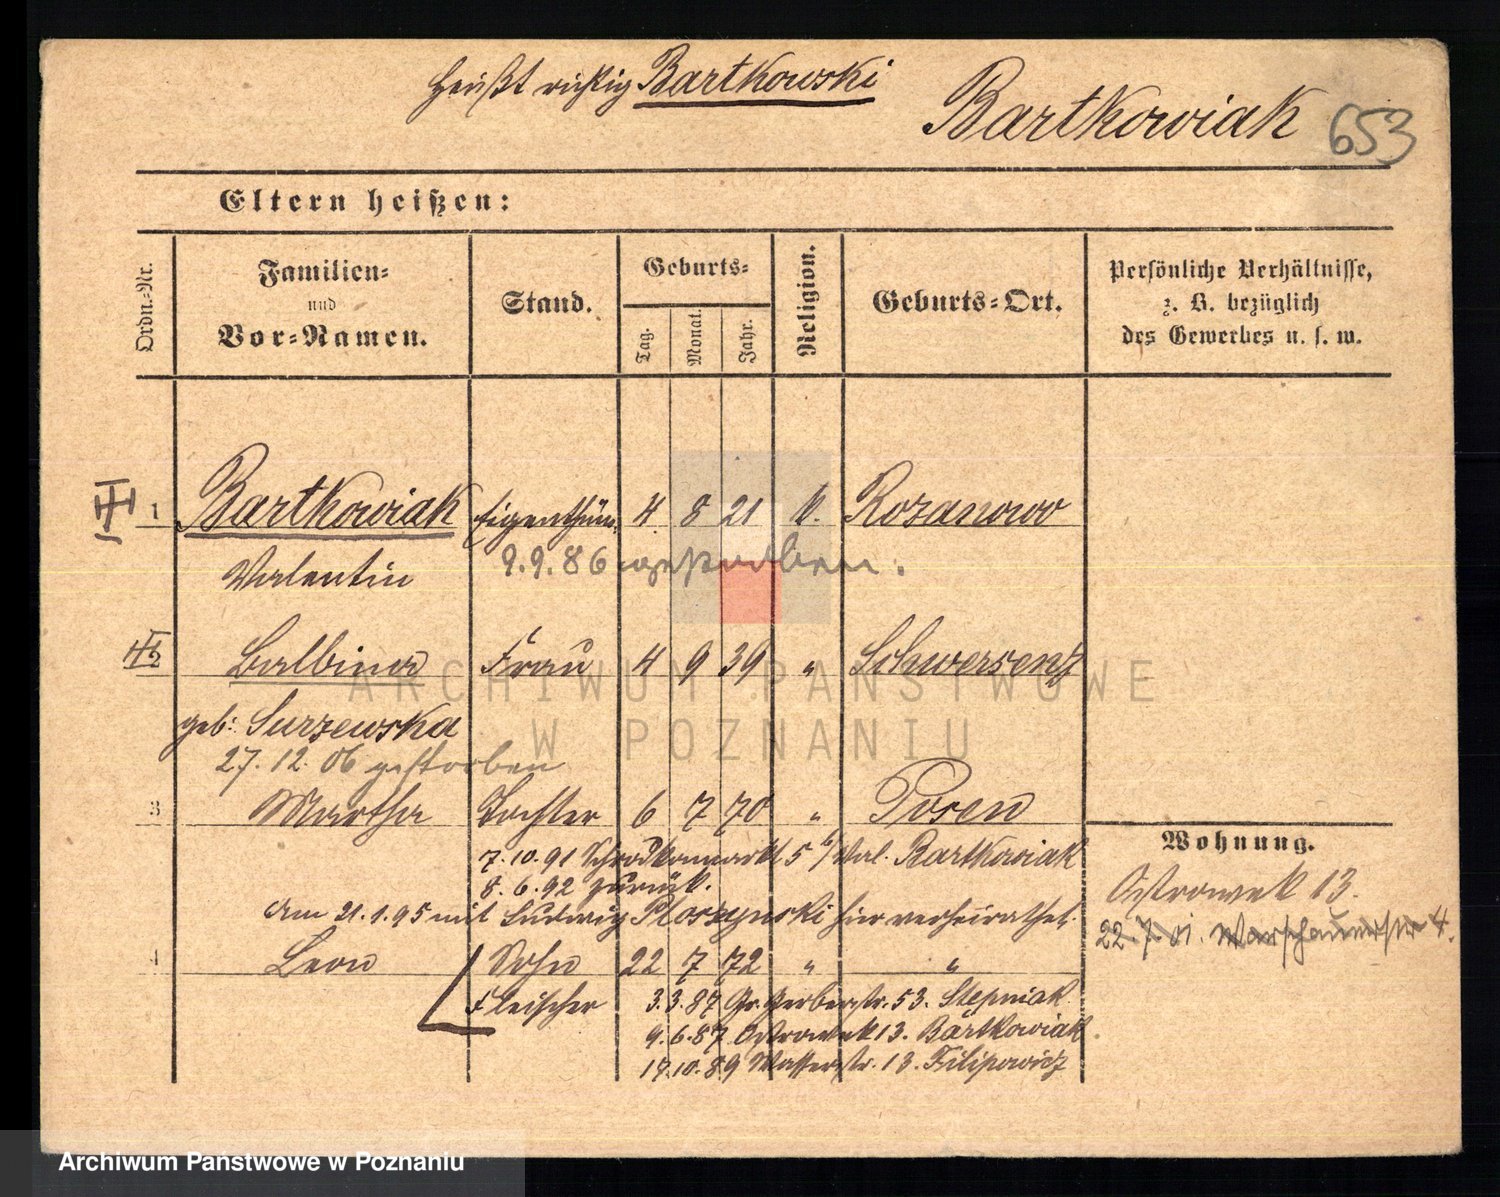 heißt richtig Bartkowski
Bartkowiak 653
Eltern heißen:
Ordn.-Nr.
Familien-
und
Vor-Namen.
Stand.
Geburts-
Tag.
Monat.
Jahr.
Religion.
Geburts-Ort.
Persönliche Verhältnisse,
z. B. bezüglich
des Gewerbes u. s. w.
1 Bartkowiak Eigenthüm. 4 8 21 k. Rozanowo
Valentin 9.9.86 gestorben.
2 Balbina Frau 4 9 39 " Schwersenz
geb: Surzewska
27.12.06 gestorben
3 Martha Tochter 6 7 70 " Posen
7.10.91 Schrodkamarkt 5 b/ Val. Bartkowiak
8.6.92 zurück.
Am 21.1.95 mit Ludwig Ploszynski hier verheirathet.
4 Leon Sohn 22 7 72 " "
Fleischer 3.3.87 Gr. Gerberstr. 53. Stepniak
9.6.87 Ostrowek 13. Bartkowiak
17.10.89 Wasserstr. 13. Filipowicz
Wohnung.
Ostrowek 13.
22.7.01. Warschauerstr 4.
ARCHIWUM PAŃSTWOWE
W POZNANIU
Archiwum Państwowe w Poznaniu